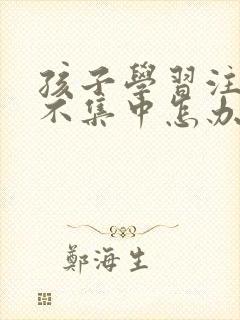 孩子學習注
不集中怎办
鄭海生